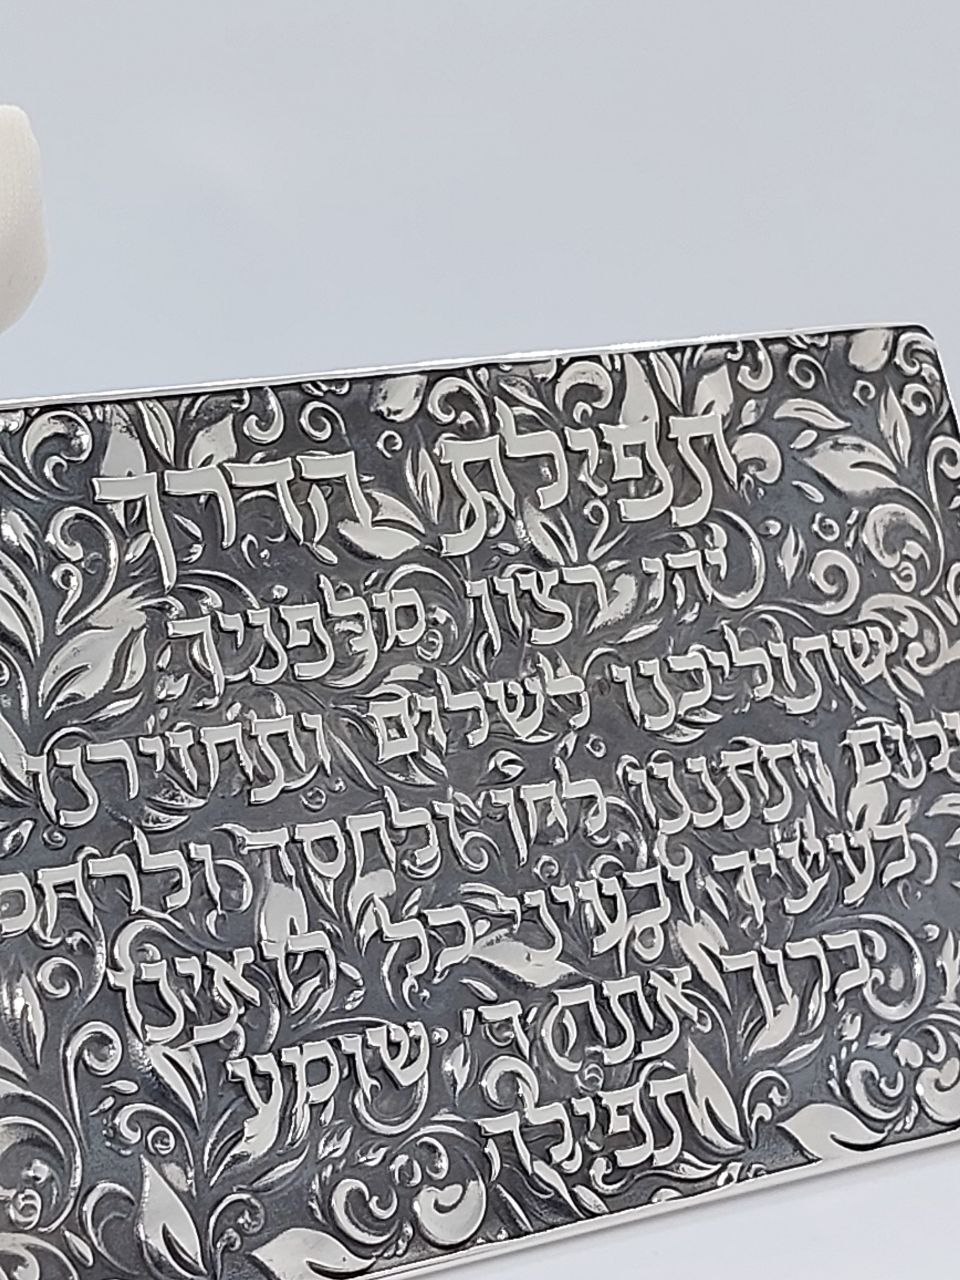 תפילת הדרך
יהי רצון מלפניך
שתוליכנו לשלום ותחזירנו
ותתננו לחן ולחסד
בעיניך ובעיני כל רואינו
ברוך אתה ד' שומע
תפילה